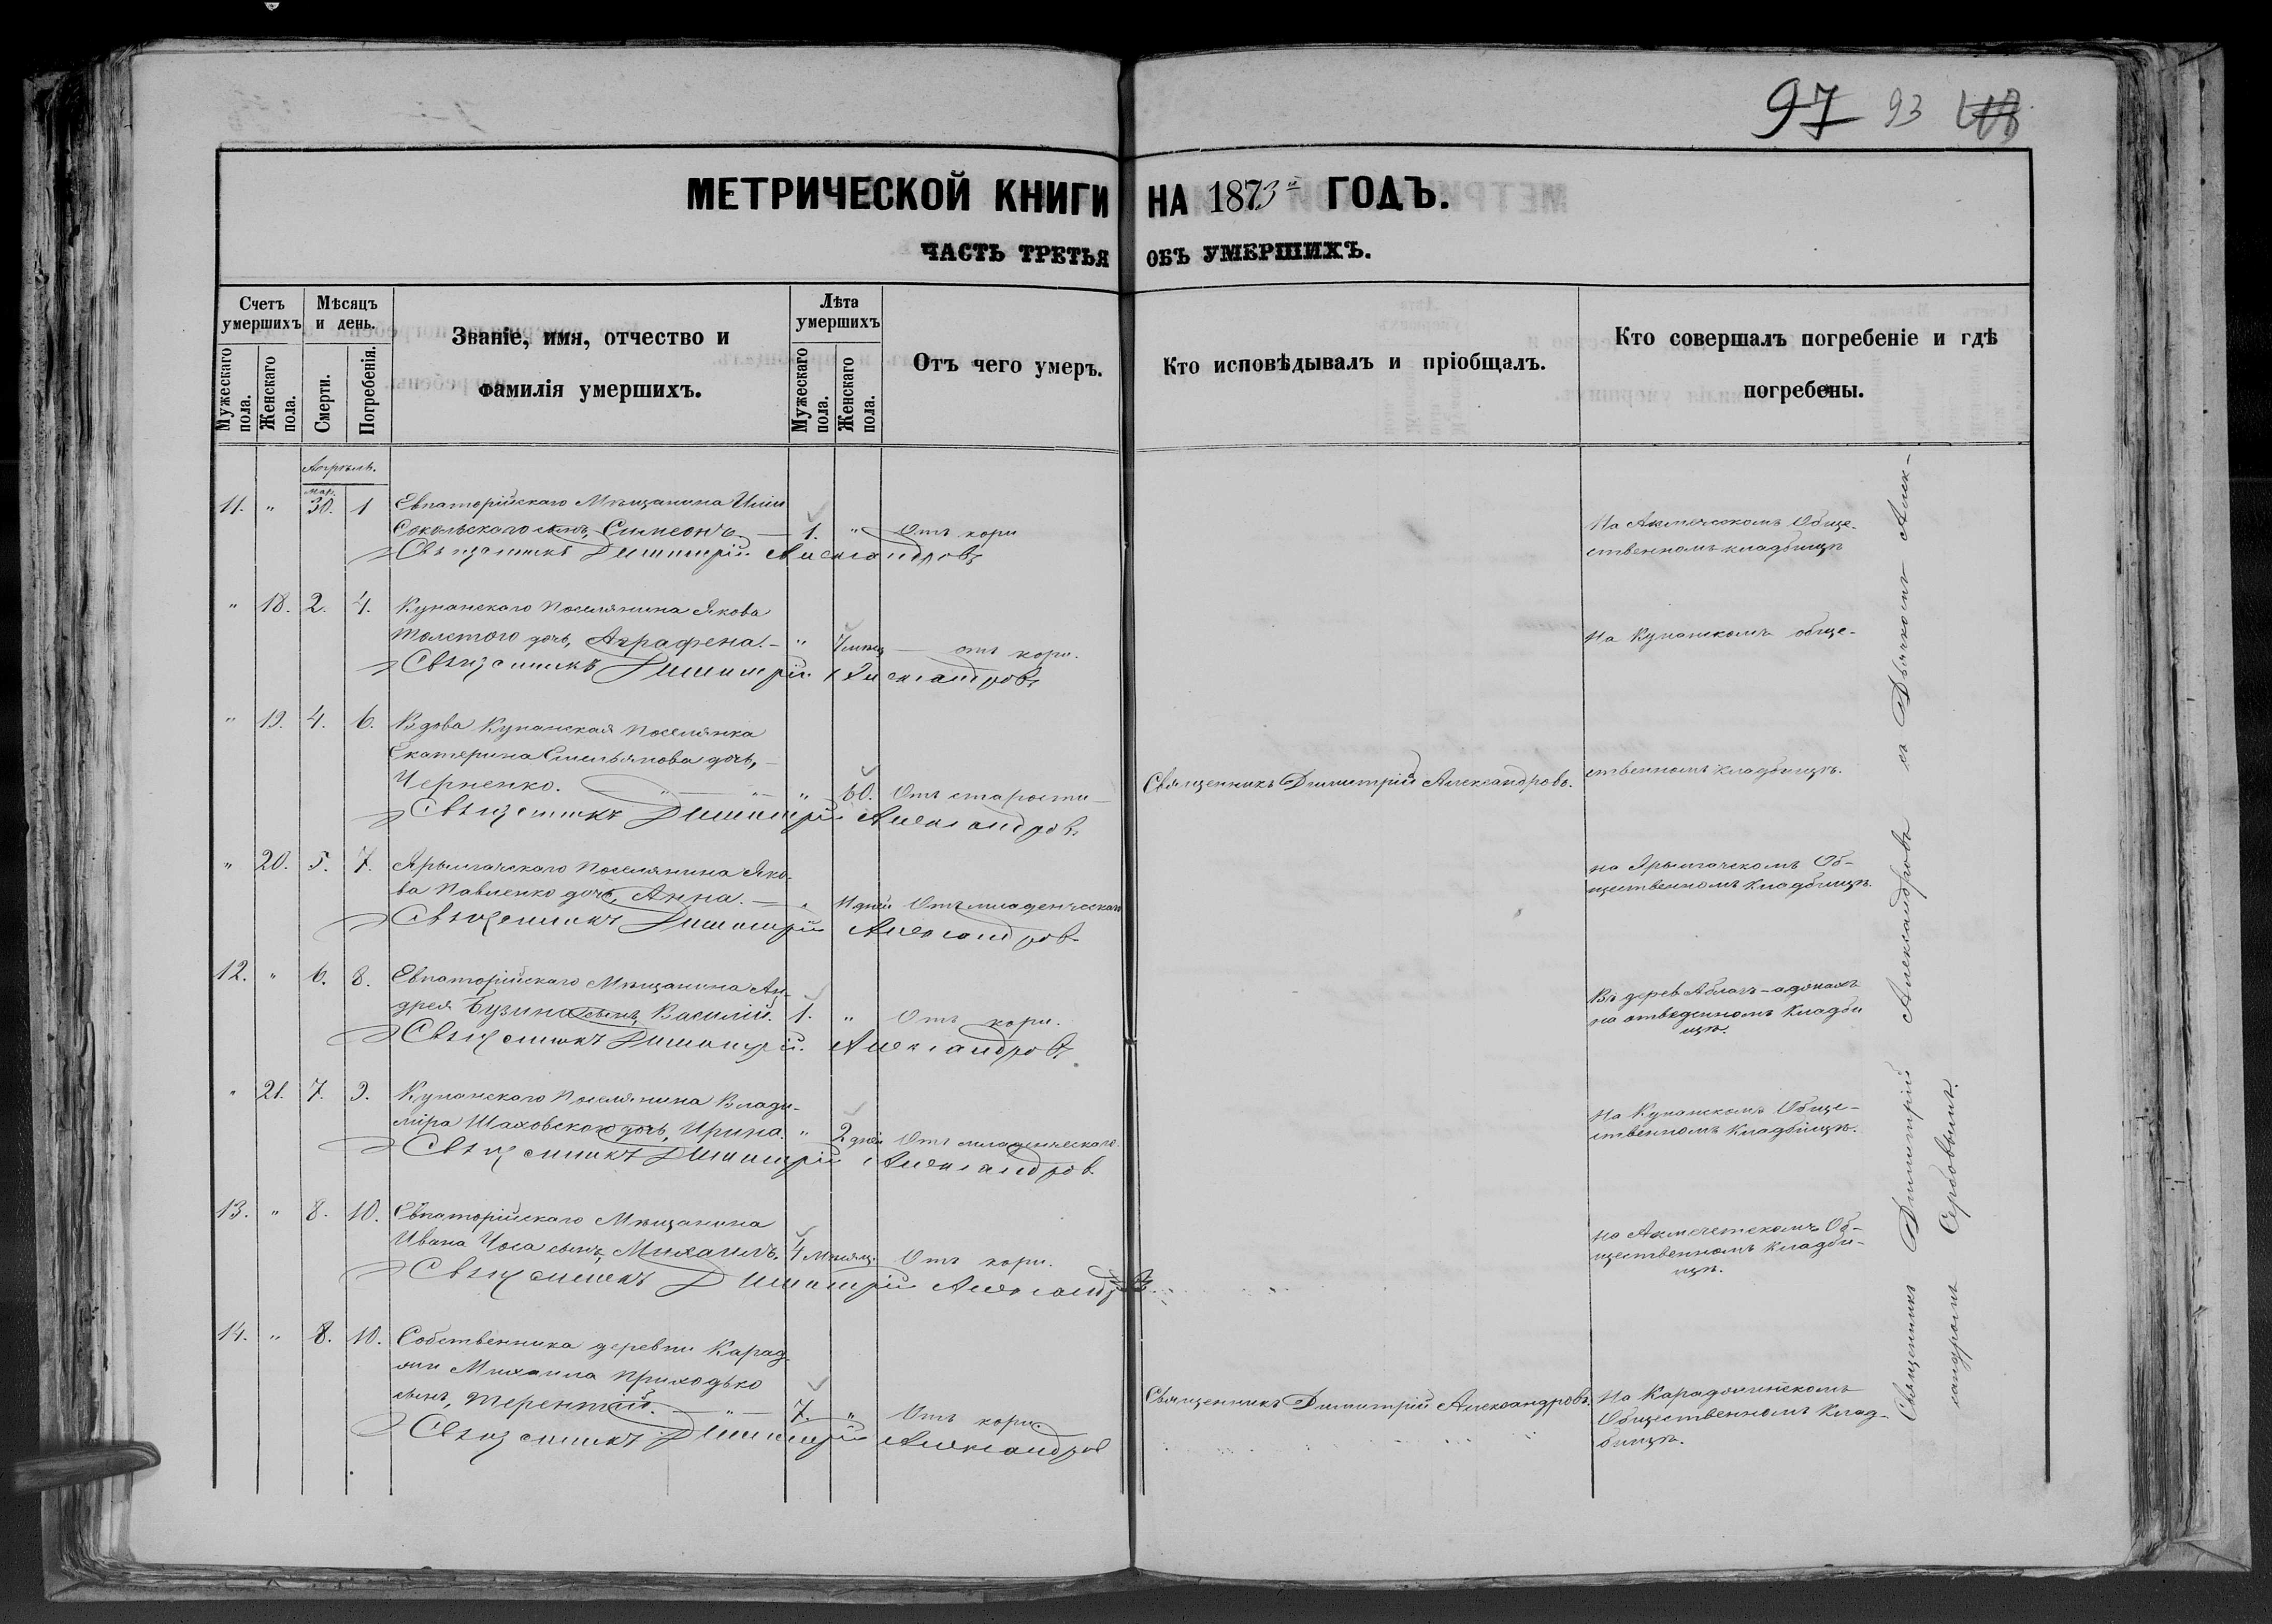 97 93
МЕТРИЧЕСКОЙ КНИГИ НА 1873й ГОДЪ.
ЧАСТЬ ТРЕТЬЯ ОБЪ УМЕРШИХЪ.
Счетъ умершихъ
Мужескаго пола.
Женскаго пола.
Мѣсяцъ и день.
Смерти.
Погребенія.
Званіе, имя, отчество и
фамилія умершихъ.
Лѣта умершихъ
Мужескаго пола.
Женскаго пола.
Отъ чего умеръ.
Кто исповѣдывалъ и пріобщалъ.
Кто совершалъ погребеніе и гдѣ
погребены.
Апрѣль.
мар.
11. " 30. 1 Евпаторійскаго Мѣщанина Иліи
Сокольскаго сынъ, Симеонъ 1. " Отъ кори
Священникъ Димитрій Александровъ
На Акмечетскомъ Обще-
ственномъ кладбищѣ
" 18. 2. 4. Кунанскаго поселянина Якова
Толстого дочь, Аграфена. " 7 мѣсяц отъ кори.
Священникъ Димитрій Александровъ
На Кунанскомъ обще-
" 19. 4. 6. Вдова Кунанская поселянка
Екатерина Емельянова дочь,
Черненко. " " " 60. Отъ старости
Священникъ Димитрій Александровъ
Священникъ Димитрій Александровъ.
ственномъ кладбищѣ.
" 20. 5. 7. Ярылгачскаго поселянина Яко-
ва Павленко дочь, Анна. " 11 дней Отъ младенческаго
Священникъ Димитрій Александровъ
на Ярылгачскомъ Об-
щественномъ кладбищѣ.
12. " 6. 8. Евпаторійскаго Мѣщанина Ан-
дрея Бузина сынъ, Василій. 1. " Отъ кори.
Священникъ Димитрій Александровъ
Въ дерев
на отведенномъ кладби
щѣ.
" 21. 7. 9. Кунанскаго поселянина Влади-
міра Шаховскаго дочь, Ирина. " 2 дней Отъ младенческаго.
Священникъ Димитрій Александров
На Кунанскомъ Обще-
ственномъ кладбищѣ.
13. " 8. 10. Евпаторійскаго Мѣщанина
Ивана сынъ, Михаилъ. 4 мѣсяц. Отъ кори.
Священникъ Димитрій Александровъ
на Акмечетскомъ Об-
щественномъ кладби-
щѣ.
14. " 8. 10. Собственника деревни Карад-
жи Михаила Приходько
сынъ, Терентій. " 7. " Отъ кори.
Священникъ Димитрій Александров
Священникъ Димитрій Александровъ.
На Караджинскомъ
Общественномъ клад-
бищѣ.
Священникъ Димитрій Александровъ съ Дьячкомъ Алек-
сандромъ Сербовымъ.